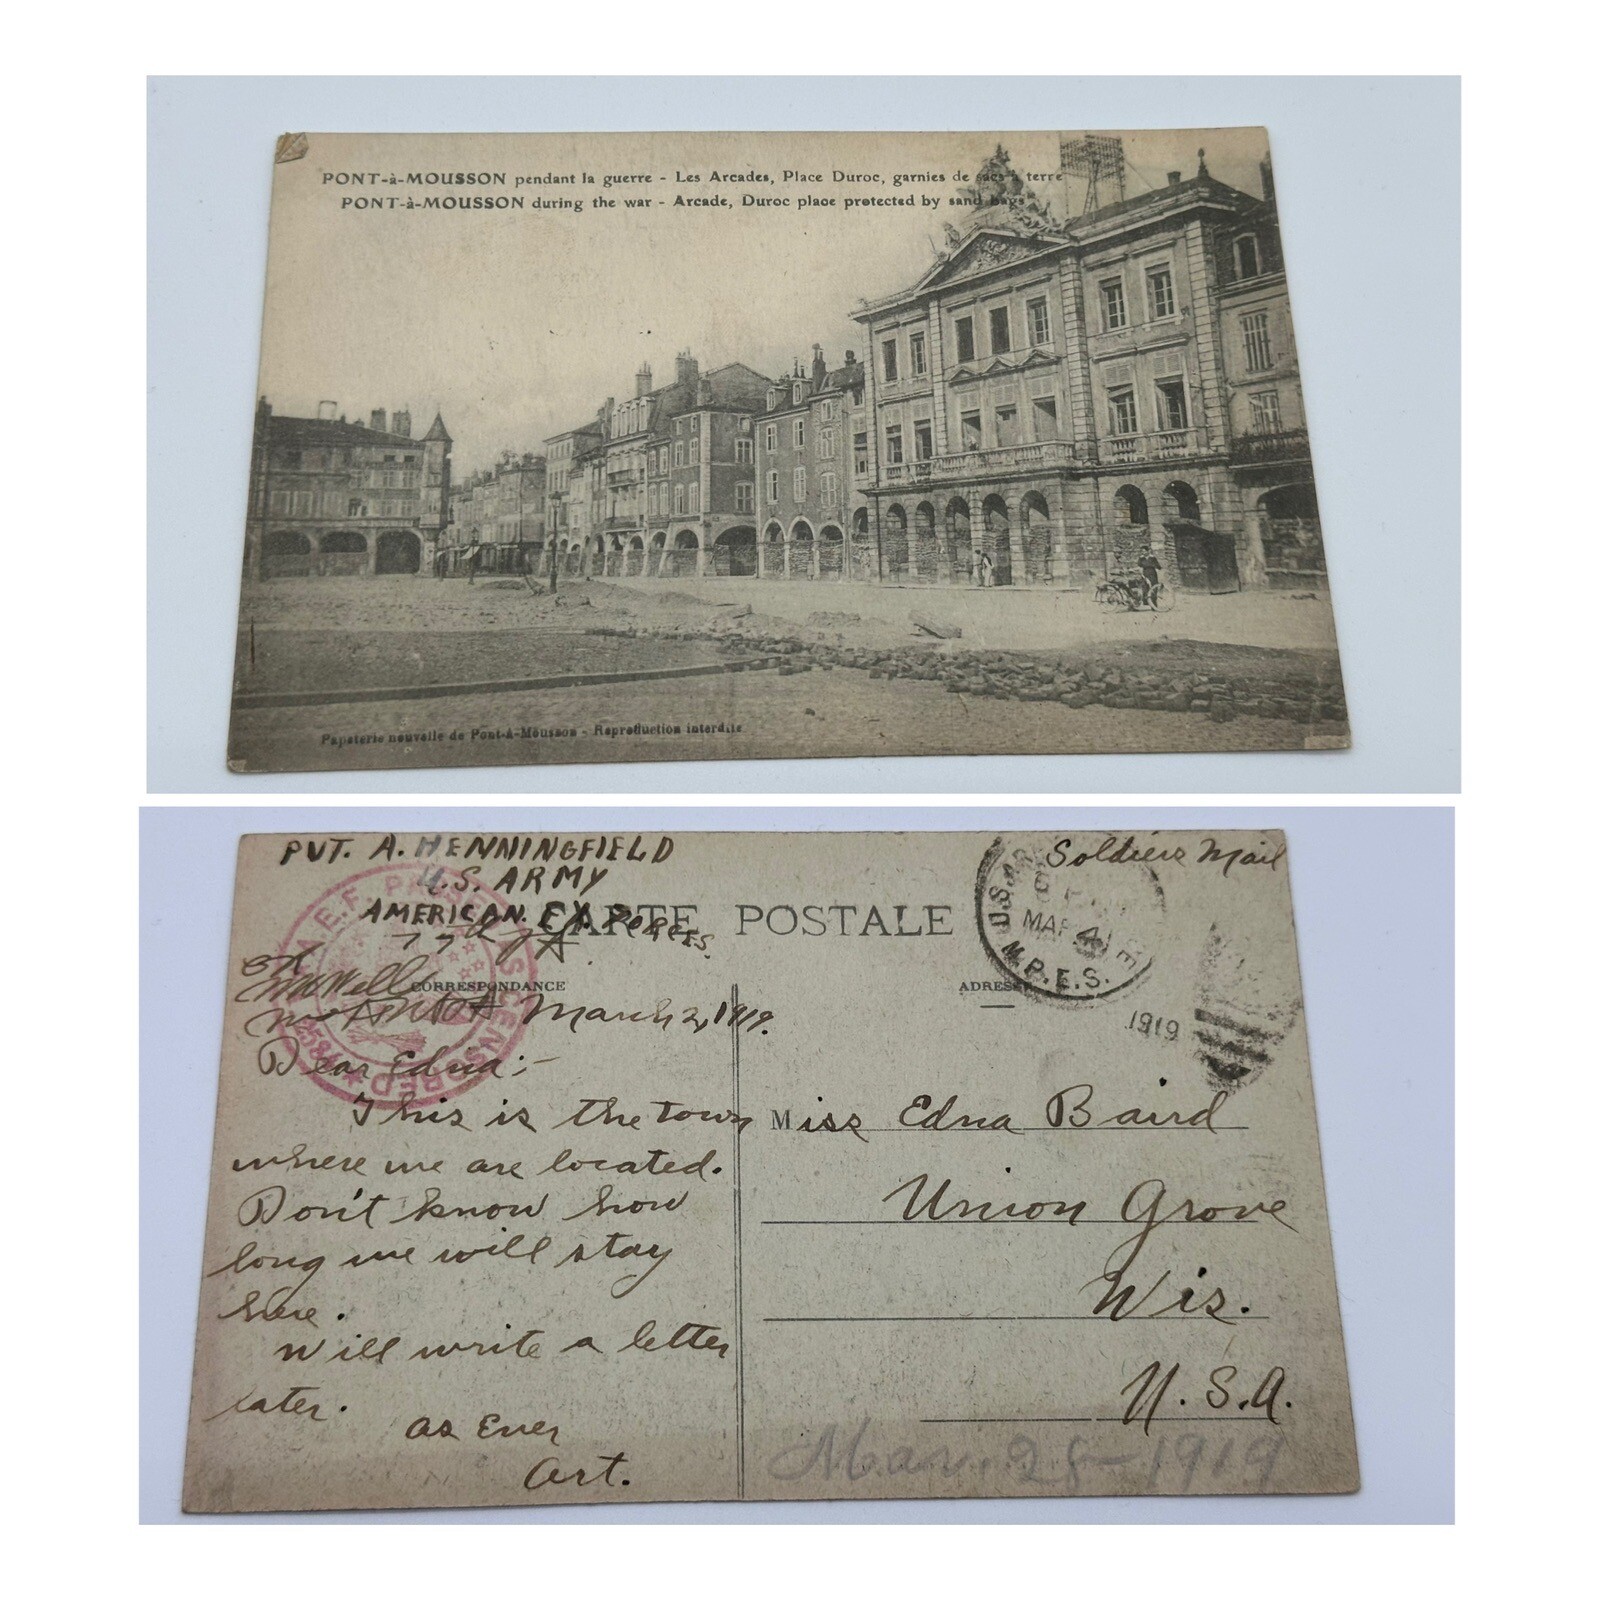 PONT-à-MOUSSON pendant la guerre - Les Arcades, Place Duroc, garnies de sacs à terre
PONT-à-MOUSSON during the war - Arcade, Duroc place protected by sand bags
Papeterie nouvelle de Pont-A-Mousson - Reproduction interdite
PVT. A. HENNINGFIELD
U.S. ARMY
AMERICAN. EX. FORCES
CARTE POSTALE
Soldiers Mail
U.S. AR
MAR 4
M.P.E.S.
1919
A.E.F. PASSED AS CENSORED
77th F A
OK
CORRESPONDANCE
ADRESSE
March 2, 1919.
Dear Edna;-
This is the town
where we are located.
Don't know how
long we will stay
here.
Will write a letter
later.
As Ever
Art.
Miss Edna Baird
Union Grove
Wis.
U.S.A.
Mar. 28-1919